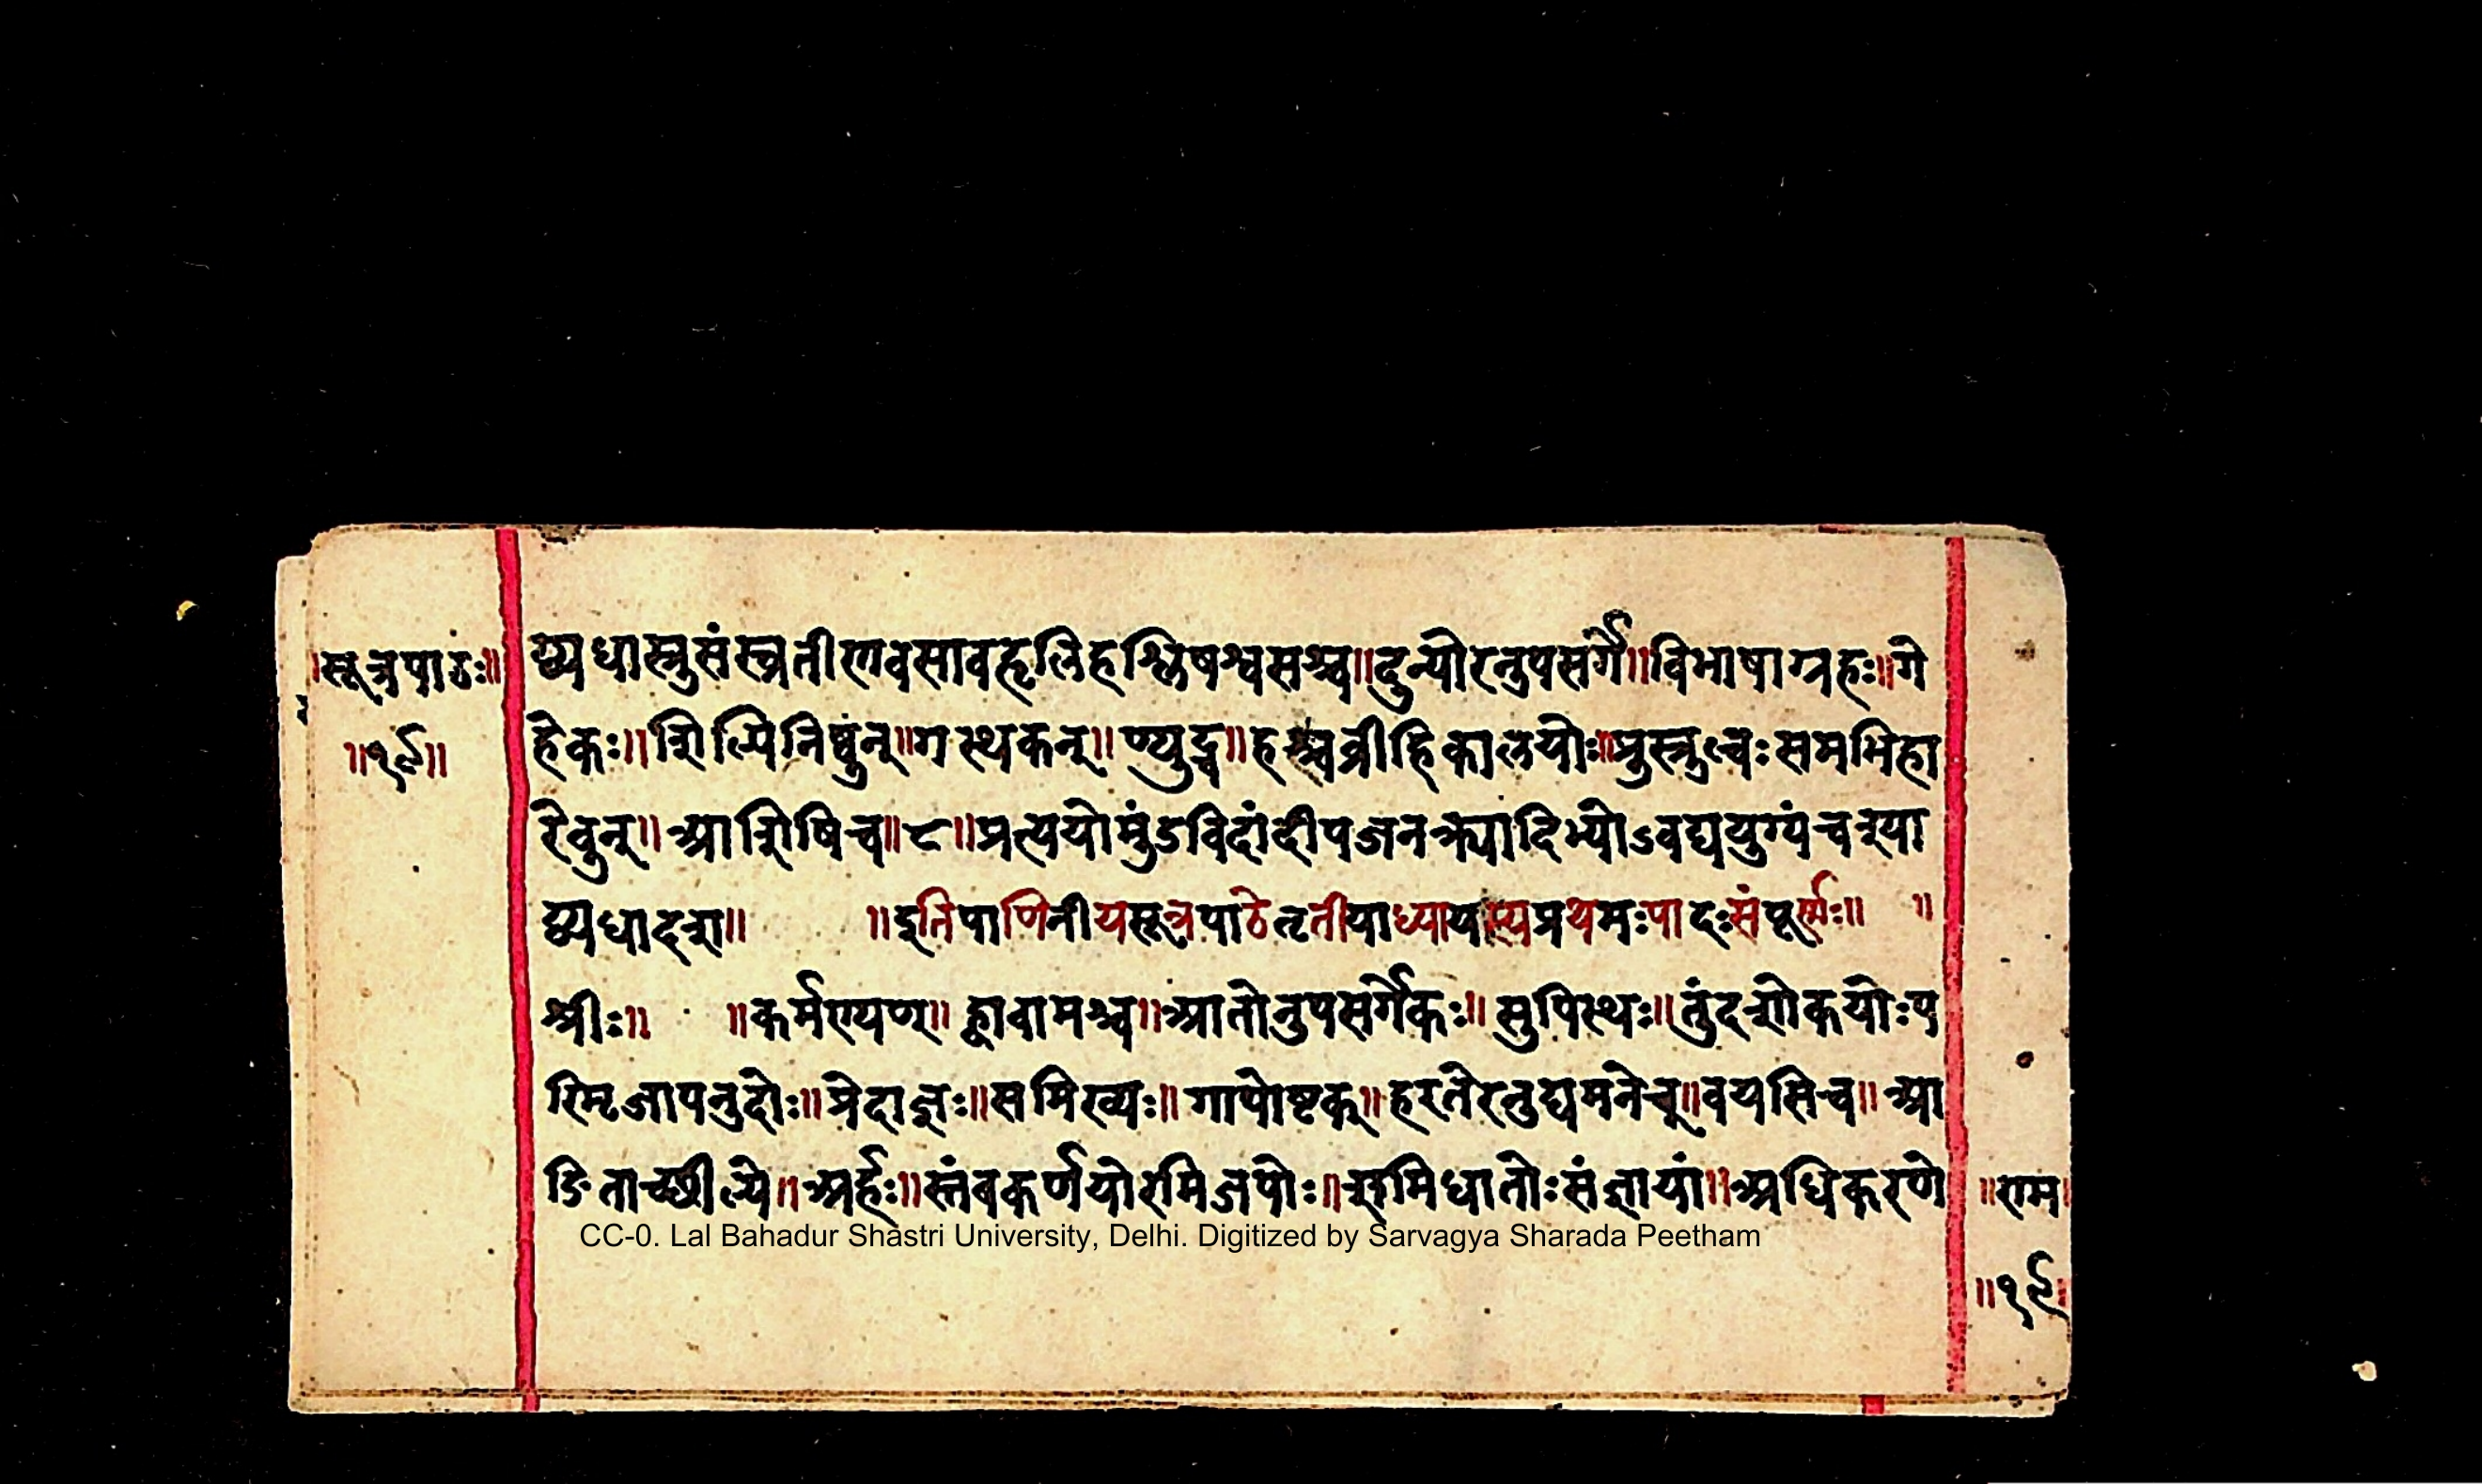 ॥सूत्रपाठः॥
॥१९॥
द्व्यधास्त्रुसंस्त्र्वतीणवसावहृलिहश्लिषश्वसश्च॥दुन्योरनुपसर्गे॥विभाषाग्रहः॥गे
हेकः॥शिल्पिनिष्वुंन्॥गस्थकन्॥ण्युट्च॥हश्चव्रीहिकालयोः॥प्रुसृल्वःसमभिहा
रेवुन्॥आशिषिच॥८॥प्रत्ययोमुंडविदांदीपजनक्र्यादिभ्योऽवद्ययुग्यंचश्या
द्व्यधादश॥ ॥इतिपाणिनीयसूत्रपाठेतृतीयाध्यायस्यप्रथमःपादःसंपूर्णः॥ ॥
श्रीः॥ ॥कर्मण्यण्॥ह्वावामश्च॥आतोनुपसर्गेकः॥सुपिस्थः॥तुंदशोकयोःप
रिमृजापनुदोः॥प्रेदाज्ञः॥समिख्यः॥गापोष्टक्॥हरतेरनुद्यमनेच्॥वयसिच॥आ
ङिताच्छील्ये॥अर्हः॥स्तंबकर्णयोरमिजपोः॥शमिधातोःसंज्ञायां॥अधिकरणे
॥राम॥
॥१९॥
CC-0. Lal Bahadur Shastri University, Delhi. Digitized by Sarvagya Sharada Peetham